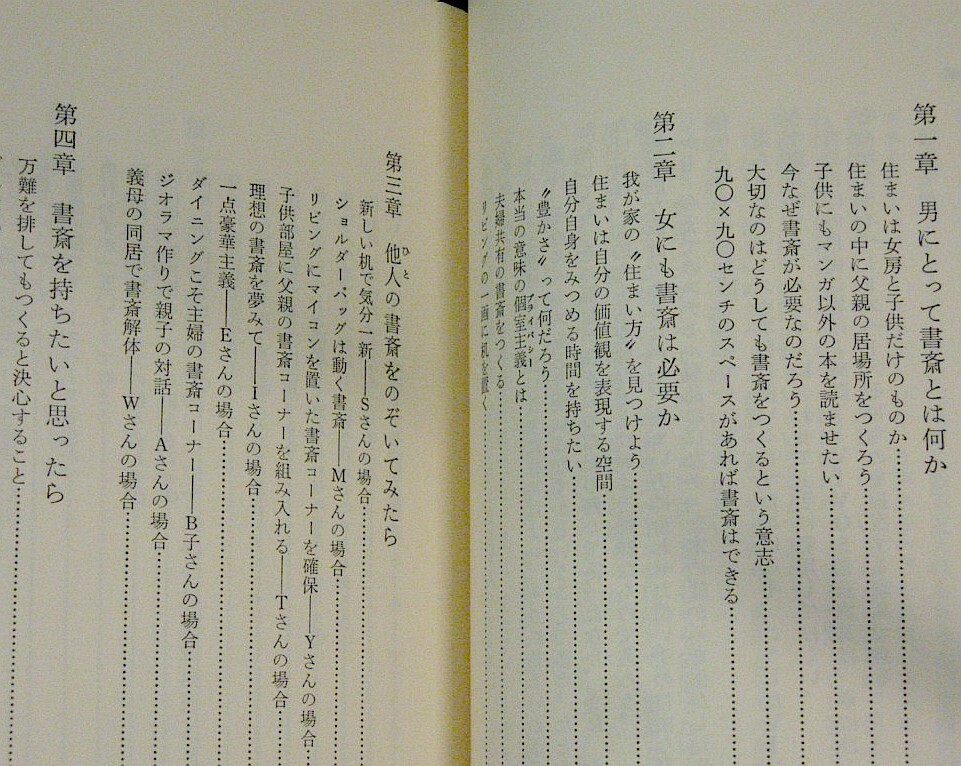 第一章　男にとって書斎とは何か
住まいは女房と子供だけのものか……………
住まいの中に父親の居場所をつくろう……………
子供にもマンガ以外の本を読ませたい……………
今なぜ書斎が必要なのだろう……………
大切なのはどうしても書斎をつくるという意志……………
九〇×九〇センチのスペースがあれば書斎はできる
第二章　女にも書斎は必要か
我が家の〝住まい方〟を見つけよう……………
住まいは自分の価値観を表現する空間……………
自分自身をみつめる時間を持ちたい……………
〝豊かさ〟って何だろう……………
本当の意味の個室主義とは……………
プライバシー
夫婦共有の書斎をつくる……………
リビングの一画に机を置く……………
第三章　他人の書斎をのぞいてみたら
ひと
新しい机で気分一新――Sさんの場合……………
ショルダーバッグは動く書斎――Mさんの場合……………
リビングにマイコンを置いた書斎コーナーを確保――Yさんの場合……
子供部屋に父親の書斎コーナーを組み入れる――Tさんの場合……………
理想の書斎を夢みて――Iさんの場合……………
一点豪華主義――Eさんの場合……………
ダイニングこそ主婦の書斎コーナー――B子さんの場合……………
ジオラマ作りで親子の対話――Aさんの場合……………
義母の同居で書斎解体――Wさんの場合……………
第四章　書斎を持ちたいと思ったら
万難を排してもつくると決心すること……………